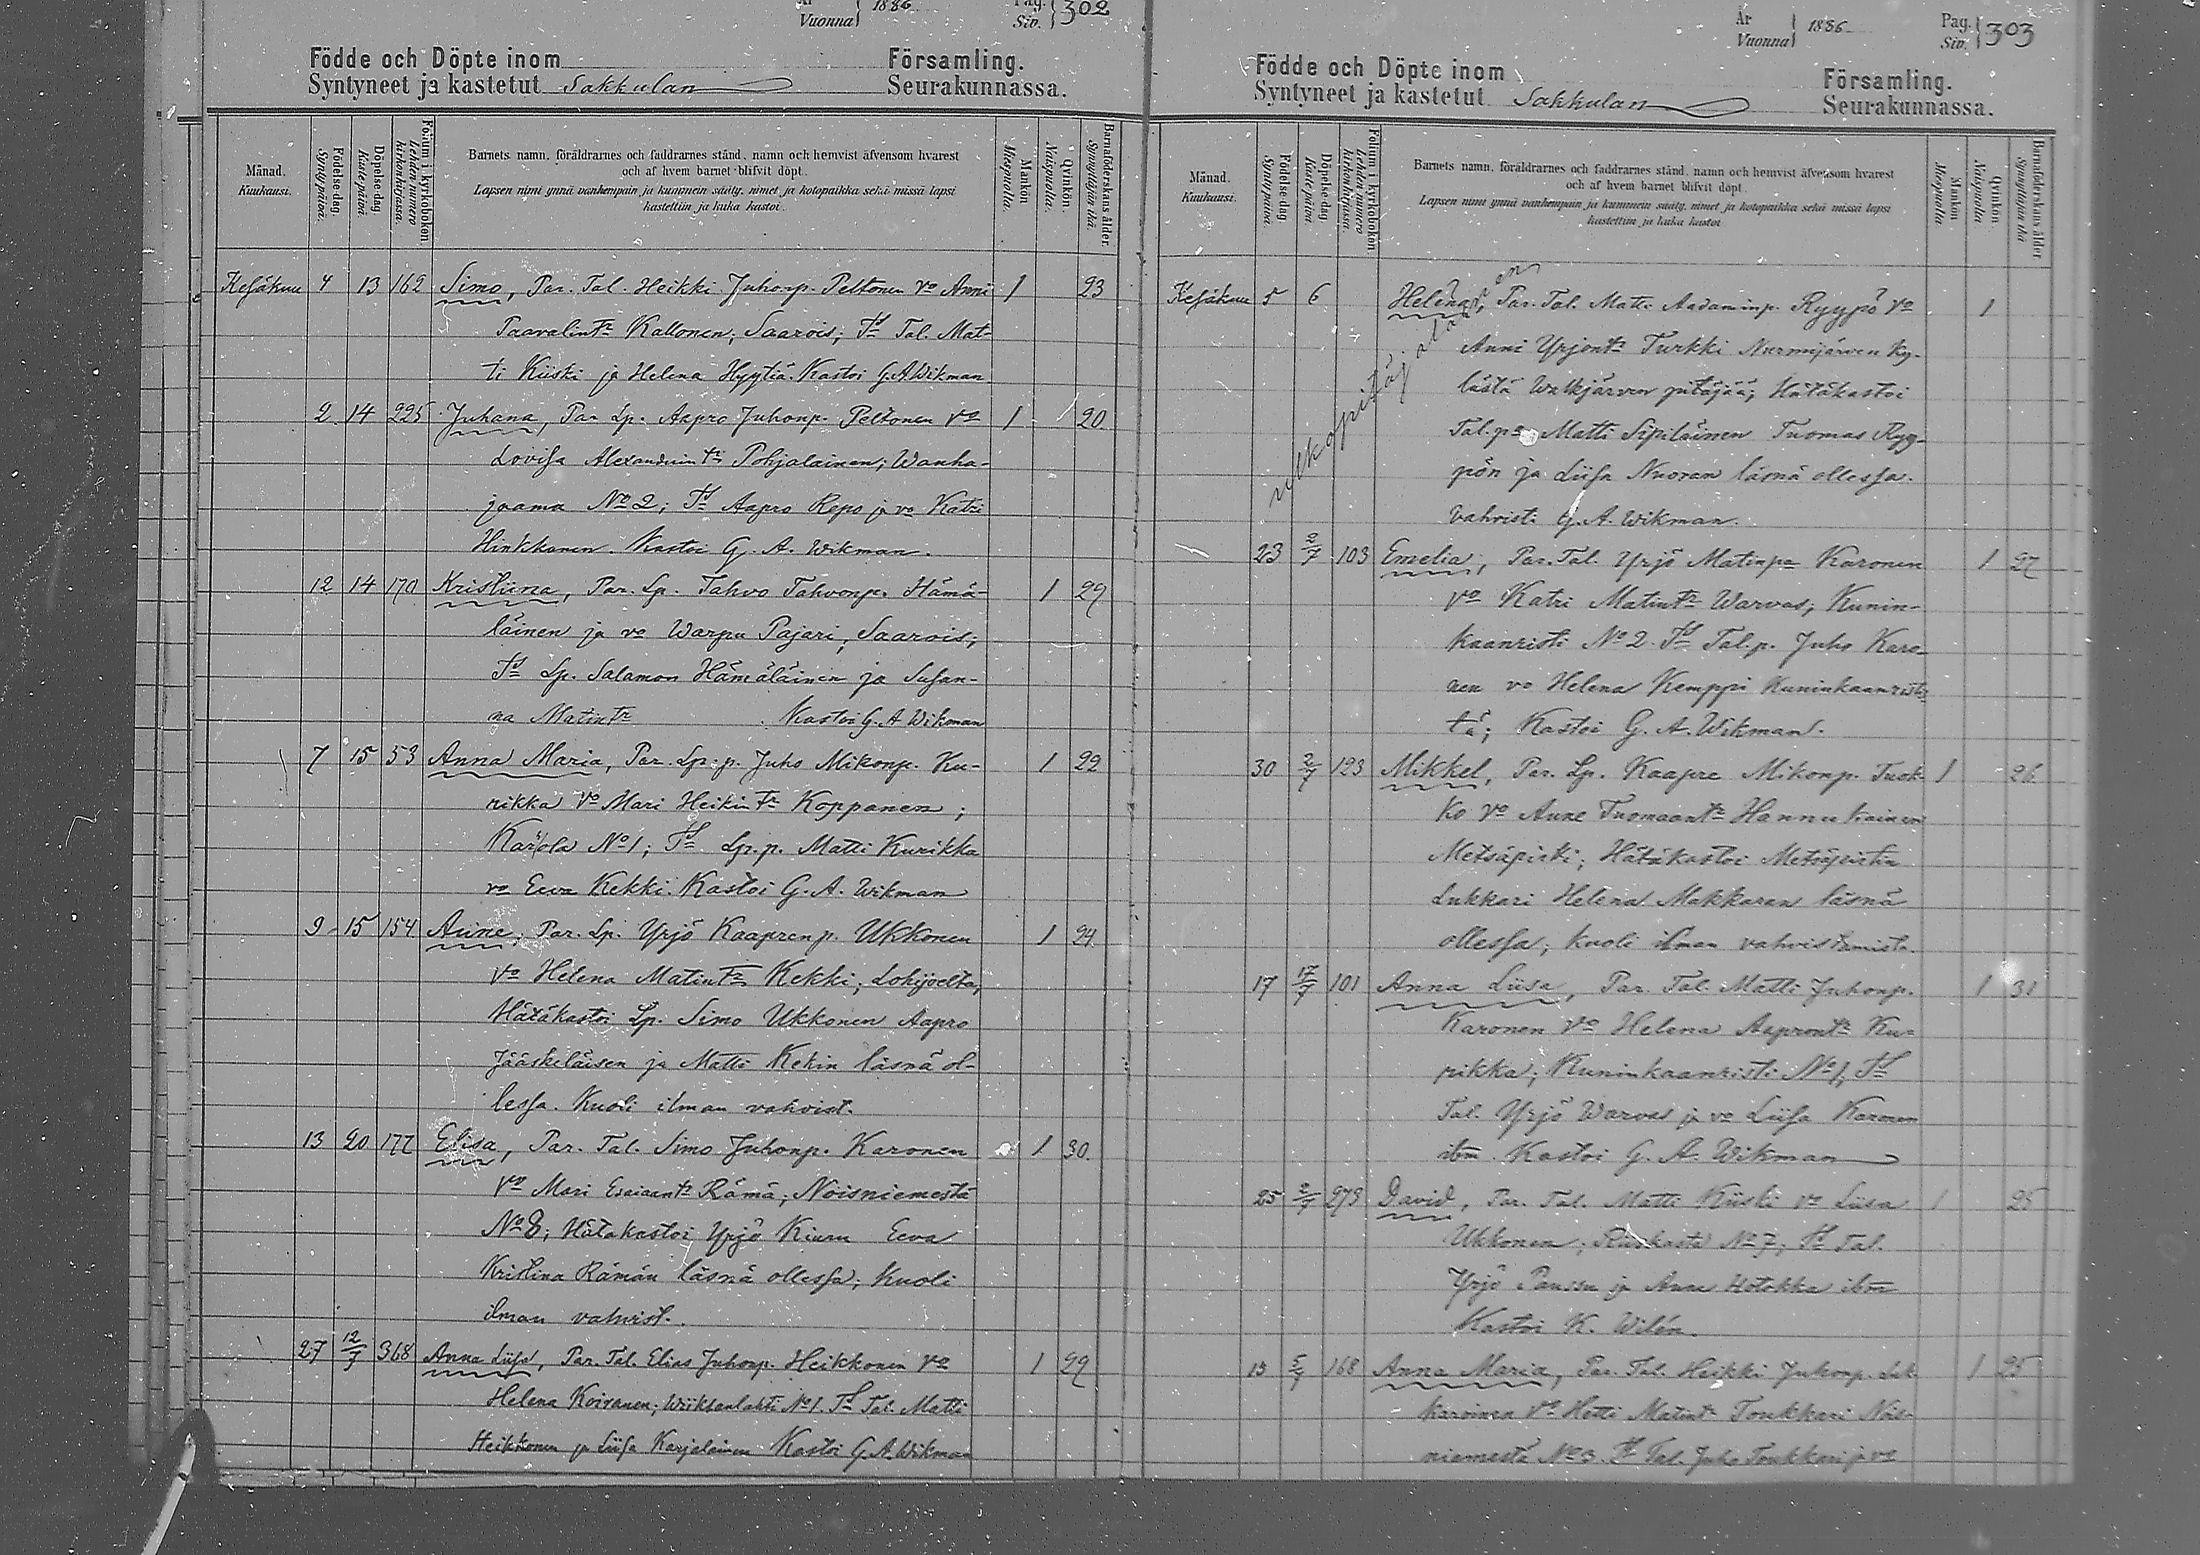 År
Vuonna 1886
Pag.
Siv. 302
Födde och Döpte inom Församling.
Syntyneet ja kastetut Sakkulan Seurakunnassa.
Månad.
Kuukausi.
Födelse-dag
Syntypäivä.
Döpelse-dag
Kastepäivä.
Folium i kyrkoboken.
Lehden numero kirkonkirjassa.
Barnets namn, föräldrarnes och faddrarnes stånd, namn och hemvist äfvensom hvarest
och af hvem barnet blifvit döpt.
Lapsen nimi ynnä vanhempain ja kummein sääty, nimet ja kotopaikka sekä missä lapsi
kastettiin ja kuka kastoi.
Mankön
Miespuolia.
Qvinkön.
Naispuolia.
Barnaföderskans ålder.
Synnyttäjän ikä.
Kesäkuu 4 13 162 Simo, Par. Tal. Heikki Juhonp. Peltonen vo Anni 1 23
Paavalintr Kallonen, Saarois; Td Tal. Mat-
ti Kiiski ja Helena Hyytiä. Kastoi G.A. Wikman
2 14 225 Juhana, Par. Lp. Aapro Juhonp. Peltonen vo 1 20
Lovisa Alexanduintr Pohjalainen; Wanha-
jaama No 2; Td Aapro Repo ja vo Katri
Hinkkanen. Kastoi G. A. Wikman.
12 14 170 Kristiina, Par. Lp. Tahvo Tahvonp. Hämä- 1 29
läinen ja vo Warpu Pajari, Saarois;
Td Lp. Salamon Hämäläinen ja Susan-
na Matintr Kastoi G. A Wikman
7 15 53 Anna Maria, Par. Lp.p. Juho Mikonp. Ku- 1 22
rikka Vo Mari Heikintr Koppanen;
Karhola No 1; Td Lp.p. Matti Kurikka
vo Eeva Kekki. Kastoi G. A. Wikman
9 15 154 Aune, Par. Lp. Yrjö Kaaprenp. Ukkonen 1 24
vo Helena Matintr Kekki, Lohijoelta,
Hätäkastoi Lp. Simo Ukkonen Aapro
Jääskeläisen ja Matti Kekin läsnä ol-
lessa. Kuoli ilman vahvist.
13 20 177 Elisa, Par. Tal. Simo Juhonp. Karonen 1 30
Vo Mari Esaiantr Rämä; Noisniemestä
No 8; Hätäkastoi Yrjö Kiuru Eeva
Kristina Rämän läsnä ollessa; Kuoli
ilman vahvist.
27 12/7 368 Anna Liisa, Par. Tal. Elias Juhonp. Heikkonen vo 1 29
Helena Koiranen; Wiiksenlahti No 1. Td Tal. Matti
Heikkonen ja Liisa Karjalainen Kastoi G. A. Wikman
År
Vuonna 1886
Pag.
Siv. 303
Födde och Döpte inom Församling.
Syntyneet ja kastetut Sakkulan Seurakunnassa.
Månad.
Kuukausi.
Födelse-dag
Syntypäivä.
Döpelse-dag
Kastepäivä.
Folium i kyrkoboken.
Lehden numero kirkonkirjassa.
Barnets namn, föräldrarnes och faddrarnes stånd, namn och hemvist äfvensom hvarest
och af hvem barnet blifvit döpt.
Lapsen nimi ynnä vanhempain ja kummein sääty, nimet ja kotopaikka sekä missä lapsi
kastettiin ja kuka kastoi
Mankön
Miespuolia
Qvinkön
Naispuolia
Barnaföderskans ålder
Synnyttäjän ikä
Kesäkuu 5 6 Helena, Par. Tal. Matti Aadaminp. Ryypö vo 1
ulkopitäjäläinen
Anni Yrjontr Turkki Nurmijärven ky-
lästä Walkjärven pitäjää; Hätäkastoi
Tal.pa Matti Sipiläinen Tuomas Ryy-
pön ja Liisa Nuoran läsnä ollessa.
Vahvisti G. A. Wikman.
23 2/7 103 Emelia, Par. Tal. Yrjö Matinpa Karonen 1 27
vo Katri Matintr Warvas; Kunin-
kaanristi No 2 Td Tal.p. Juho Karo-
nen vo Helena Kemppi Kuninkaanristis-
tä; Kastoi G. A. Wikman.
30 2/7 123 Mikkel, Par. Lp. Kaapre Mikonp. Tuok- 1 26
ko vo Aune Tuomaantr Hannukainen
Metsäpirti; Hätäkastoi Metsäpirtin
Lukkari Helena Makkaran läsnä
ollessa; kuoli ilman vahvistamista
17 17/7 101 Anna Liisa, Par. Tal. Matti Juhonp. 1 31
Karonen vo Helena Aaprontr Ku-
rikka; Kuninkaanristi No 1; Td
Tal. Yrjö Warvas ja vo Liisa Karonen
ibm. Kastoi G. A. Wikman
25 2/7 273 David, Par. Tal. Matti Kiiski vo Liisa 1 25
Ukkonen, No 7; Td Tal.
Yrjö Panssu ja Anna Hotakka ibm
Kastoi K. Wilén.
13 5/7 168 Anna Maria, Par. Tal. Heikki Juhonp. 1 25
vo Hetti Matintr Toukkari Nois-
niemestä No 3. Td Tal. Juho Toukkari ja vo